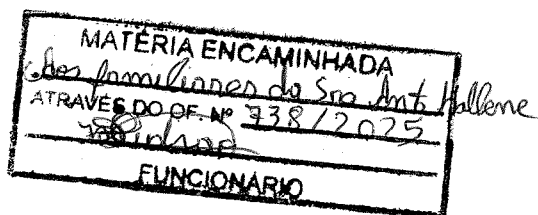 MATÉRIA ENCAMINHADA
Aos familiares da Sra Ant Hallene
ATRAVÉS DO OF. Nº 738/2025
FUNCIONÁRIO